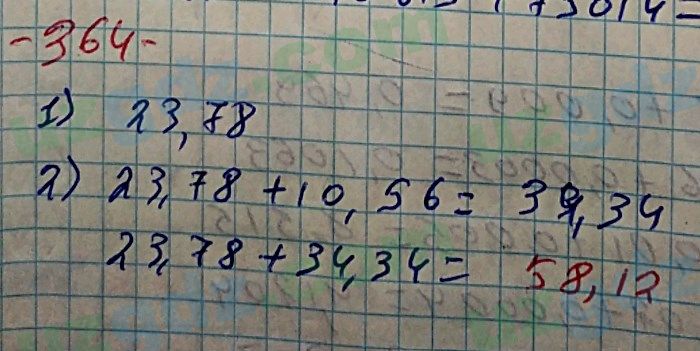 -364-
1) 23,78
2) 23,78 + 10,56 = 34,34
23,78 + 34,34 = 58,12